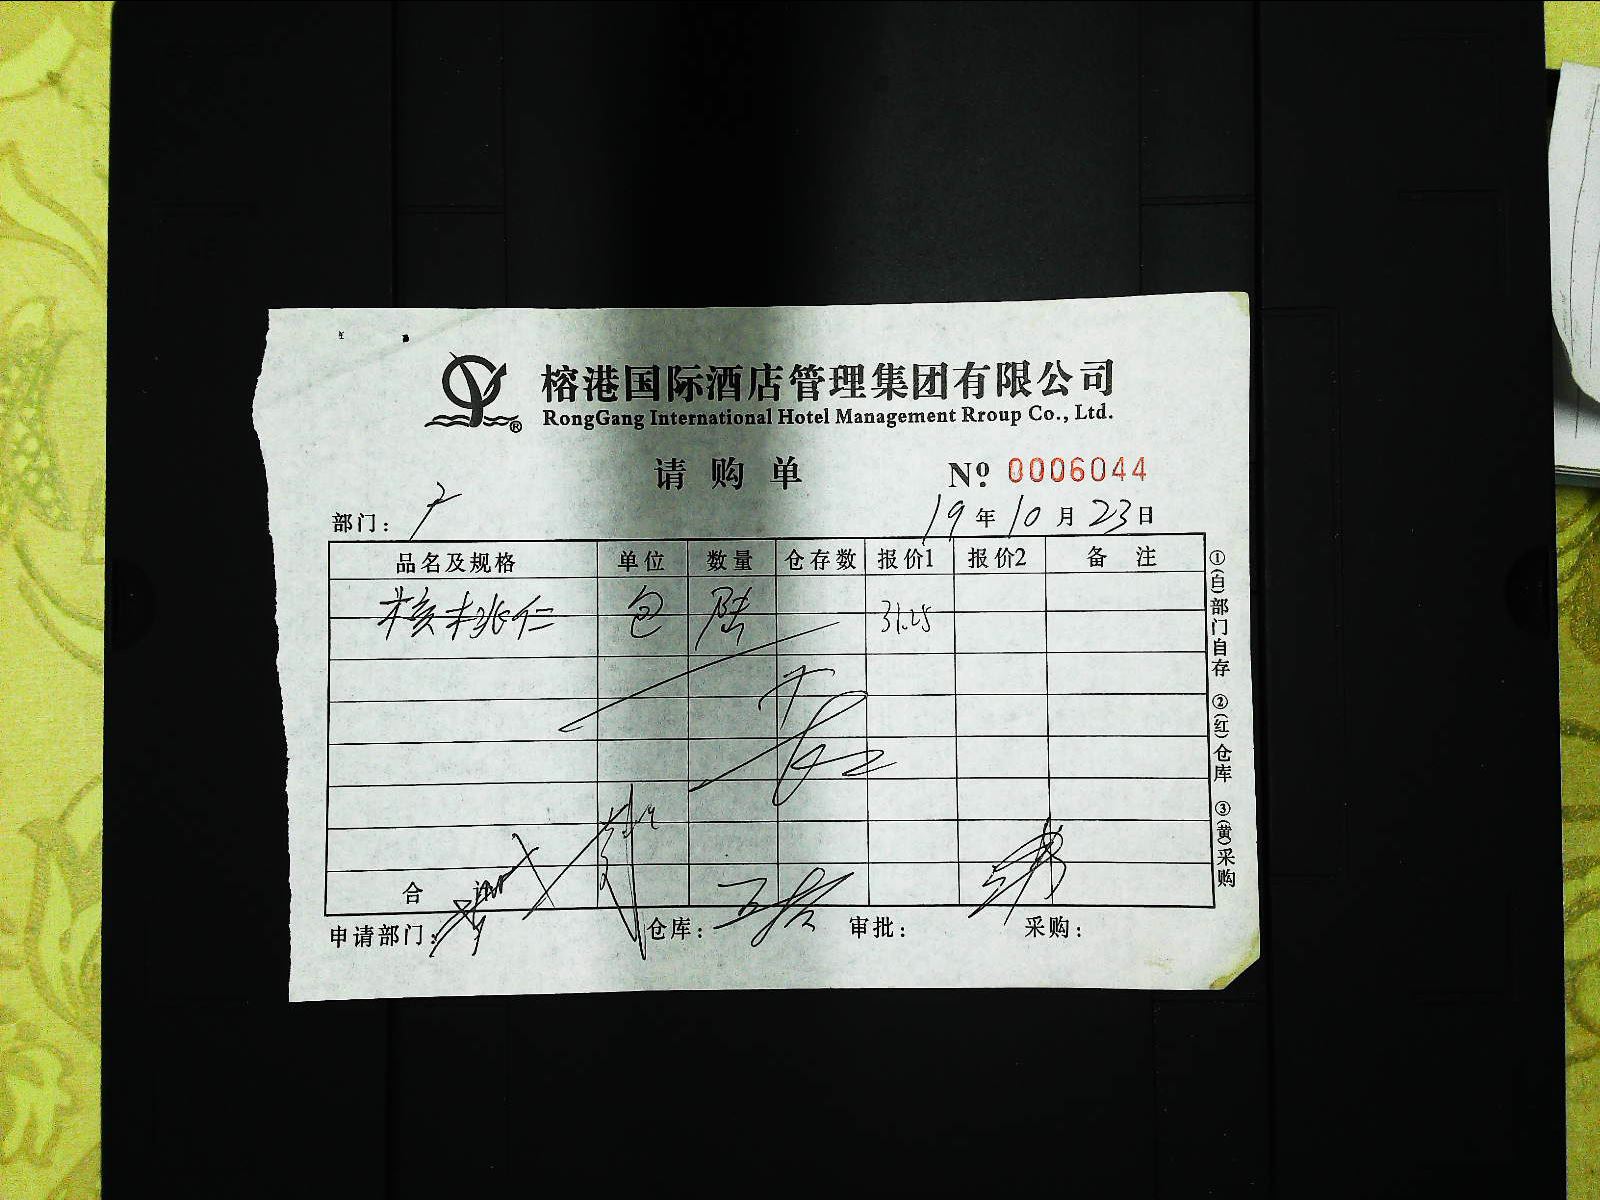 榕港国际酒店管理集团有限公司
RongGang International Hotel Management Rroup Co., Ltd.
请购单 Nº 0006044
部门： 19年10月23日
品名及规格 单位 数量 仓存数 报价1 报价2 备注
核桃仁 包 陆 31.25
合计
申请部门： 仓库： 审批： 采购：
①(白)部门自存 ②(红)仓库 ③(黄)采购